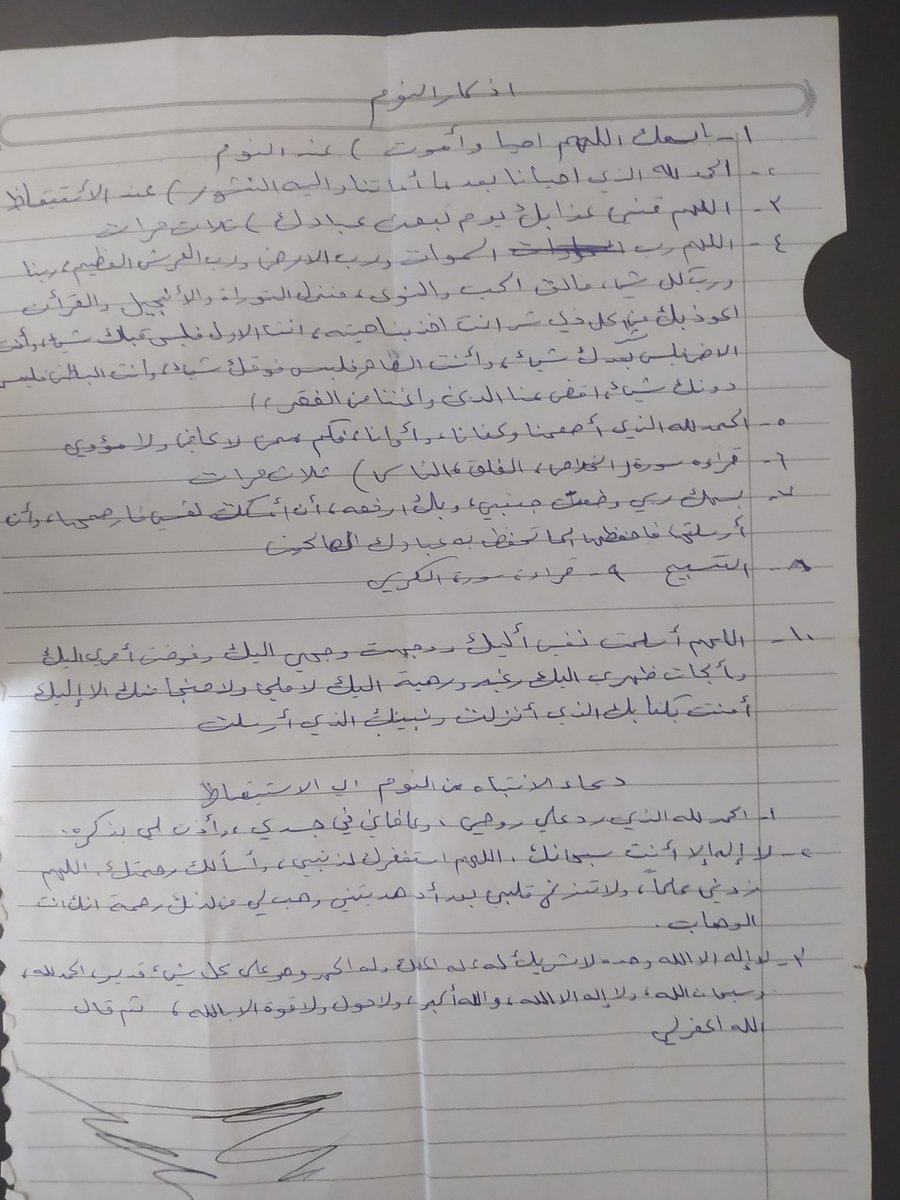 اذكار النوم
١- باسمك اللهم احيا وأموت ) عند النوم
٢- الحمد لله الذي احيانا بعد ما أماتنا واليه النشور ) عند الأستيقاظ
٣- اللهم قني عذابك يوم تبعث عبادك ) ثلاث مرات
٤- اللهم رب السموات ورب الارض ورب العرش العظيم، ربنا
ورب كل شيء، فالق الحب والنوى، منزل التوراة والأنجيل والقرآن
اعوذ بك من كل ذي شر انت اخذ بناصيته، انت الاول فليس قبلك شيء، وأنت
الاخر فليس بعدك شيء، وأنت الظاهر فليس فوقك شيء، وانت الباطن فليس
دونك شيء، اقض عنا الدين واغننا من الفقر ))
٥- الحمد لله الذي أطعمنا وكفانا، وآوانا، فكم ممن لا كافي ولا مؤوي
٦- قراءه سورة ( الاخلاص، الفلق، الناس ) ثلاث مرات
٧- بسمك ربي وضعت جنبي، وبك ارفعه، أن أمسكت نفسي فارحمها، وأن
أرسلتها فاحفظها بما تحفظ به عبادك الصالحون
٨- التسبيح ٩- قراءة سورة الكرسي
١٠- اللهم أسلمت نفسي أليك ووجهت وجهي اليك وفوضت أمري اليك
وألجات ظهري اليك رغبه ورهبة اليك لا ملجي ولا منجا منك الا إليك
أمنت بكتابك الذي أنزلت ونبيك الذي أرسلت
دعاء الانتباه من النوم الي الاستيقاظ
١- الحمد لله الذي رد علي روحي، وعافاني في جسدي، وأذن لي بذكره.
٢- لا إله إلا أنت سبحانك، اللهم استغفرك لذنبي، وأسألك رحمتك، اللهم
زدني علماً، ولا تزغ قلبي بعد أذ هديتني وهب لي من لدنك رحمة انك انت
الوهاب.
٣- لا إله الا الله وحده لا شريك له، له الملك وله الحمد وهو على كل شيء قدير، الحمد لله،
وسبحان الله، ولا إله الا الله، والله أكبر، ولا حول ولا قوة الا بالله، ثم قال
الله اغفر لي